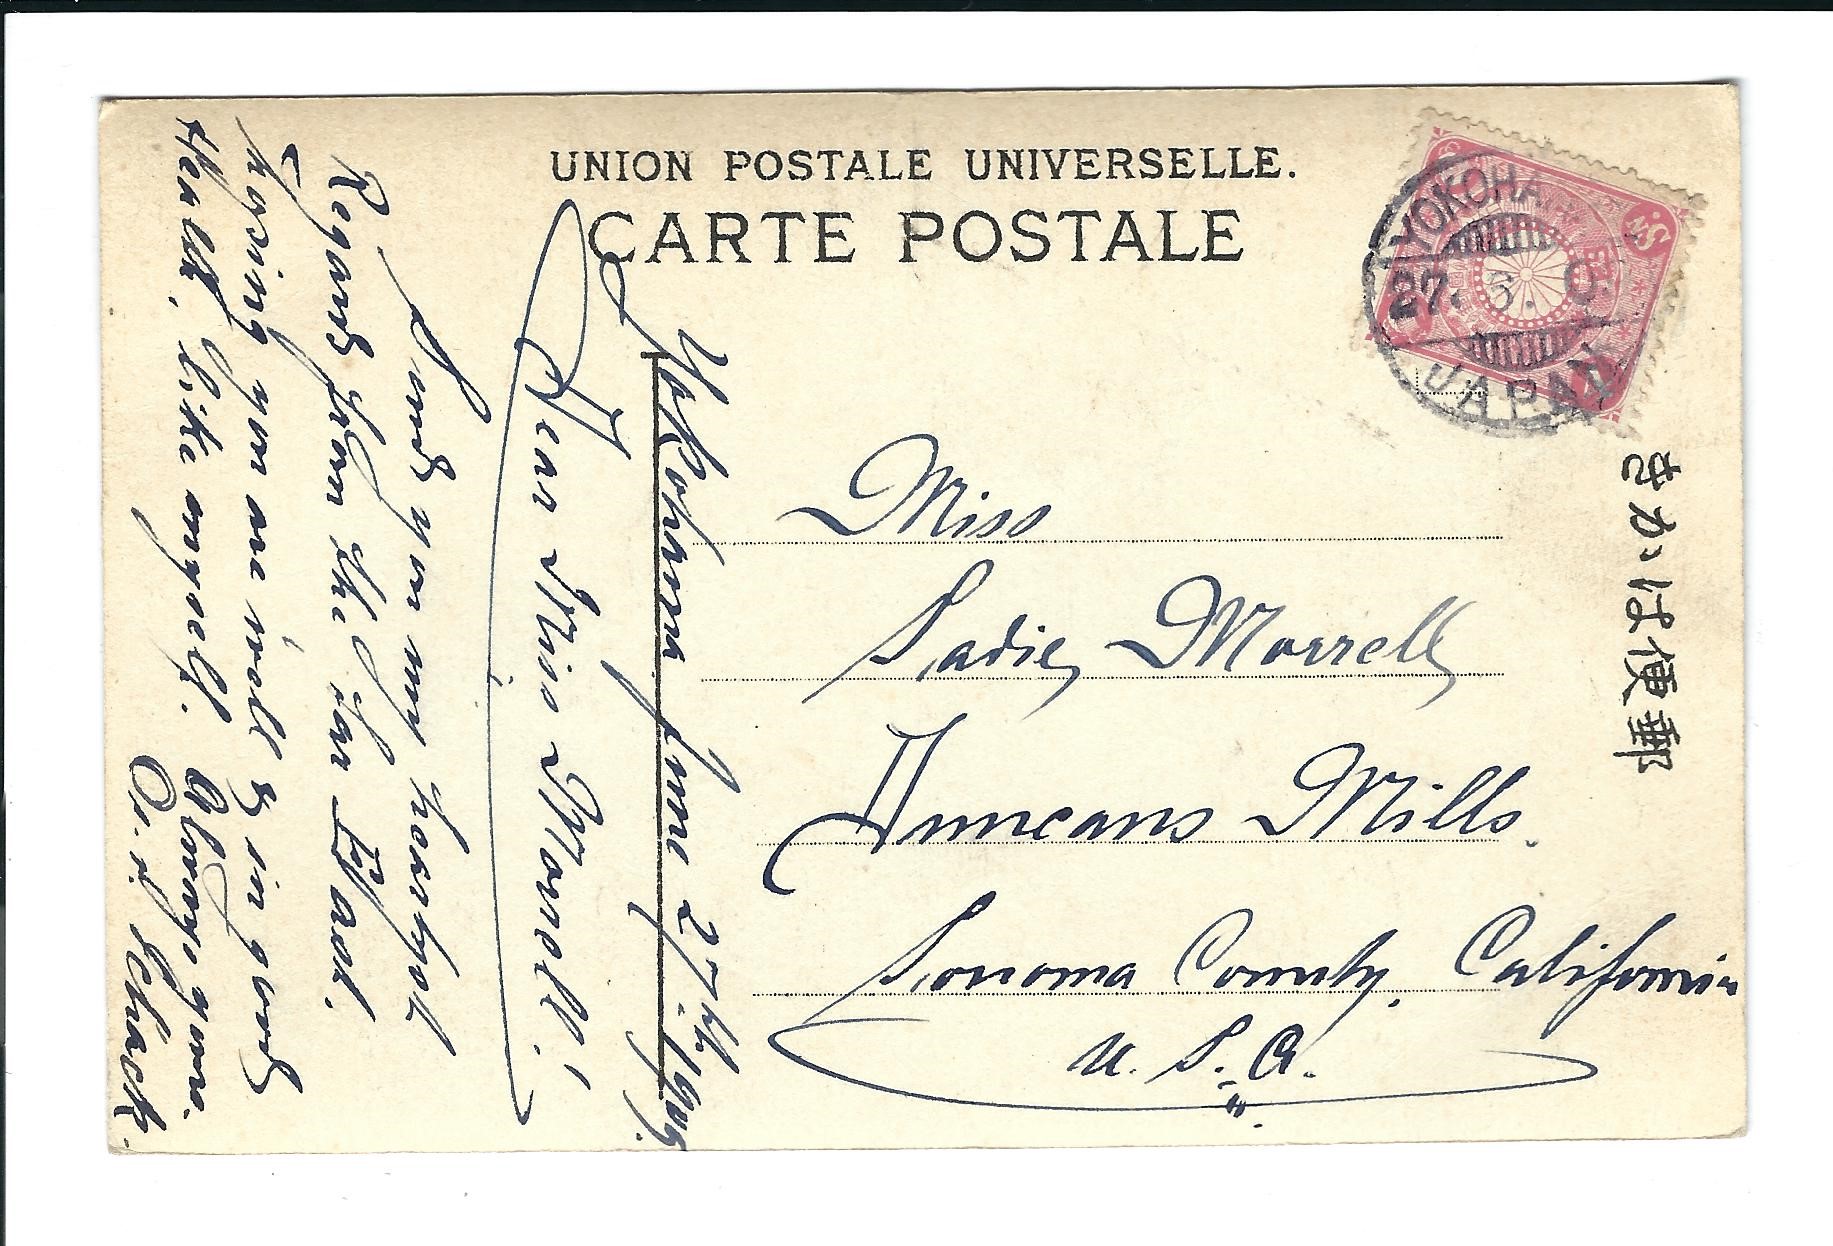 UNION POSTALE UNIVERSELLE.
CARTE POSTALE
YOKOHA
27. 6. 
JAPAN
きかは便郵
Miss
Sadie Morrell
Duncans Mills.
Sonoma County, California
U. S. A.
Yokohama June 27th 1909.
Dear Miss Morrell!
Send you my heartfelt
Regards from the far East.
Hoping you are well & in good
Health, like myself. Always yours.
Schack.